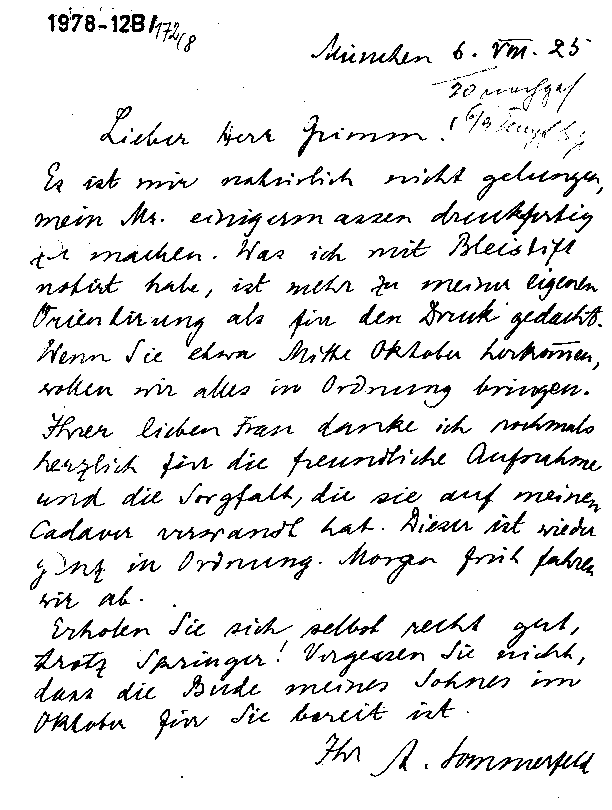 1978-12B/172/8
München 6. VIII. 25
20 nachges
Lieber Herr Grimm!
Es ist mir natürlich nicht gelungen,
mein Ms. einigermassen druckfertig
zu machen. Was ich mit Bleistift
notirt habe, ist mehr zu meiner eigenen
Orientirung als für den Druck gedacht.
Wenn Sie etwa Mitte Oktober herkommen,
wollen wir alles in Ordnung bringen.
Ihrer lieben Frau danke ich nochmals
herzlich für die freundliche Aufnahme
und die Sorgfalt, die sie auf meinen
Cadaver verwandt hat. Dieser ist wieder
ganz in Ordnung. Morgen früh fahren
wir ab.
Erholen Sie sich selbst recht gut,
trotz Springer! Vergessen Sie nicht,
dass die Bude meines Sohnes im
Oktober für Sie bereit ist.
Ihr A. Sommerfeld